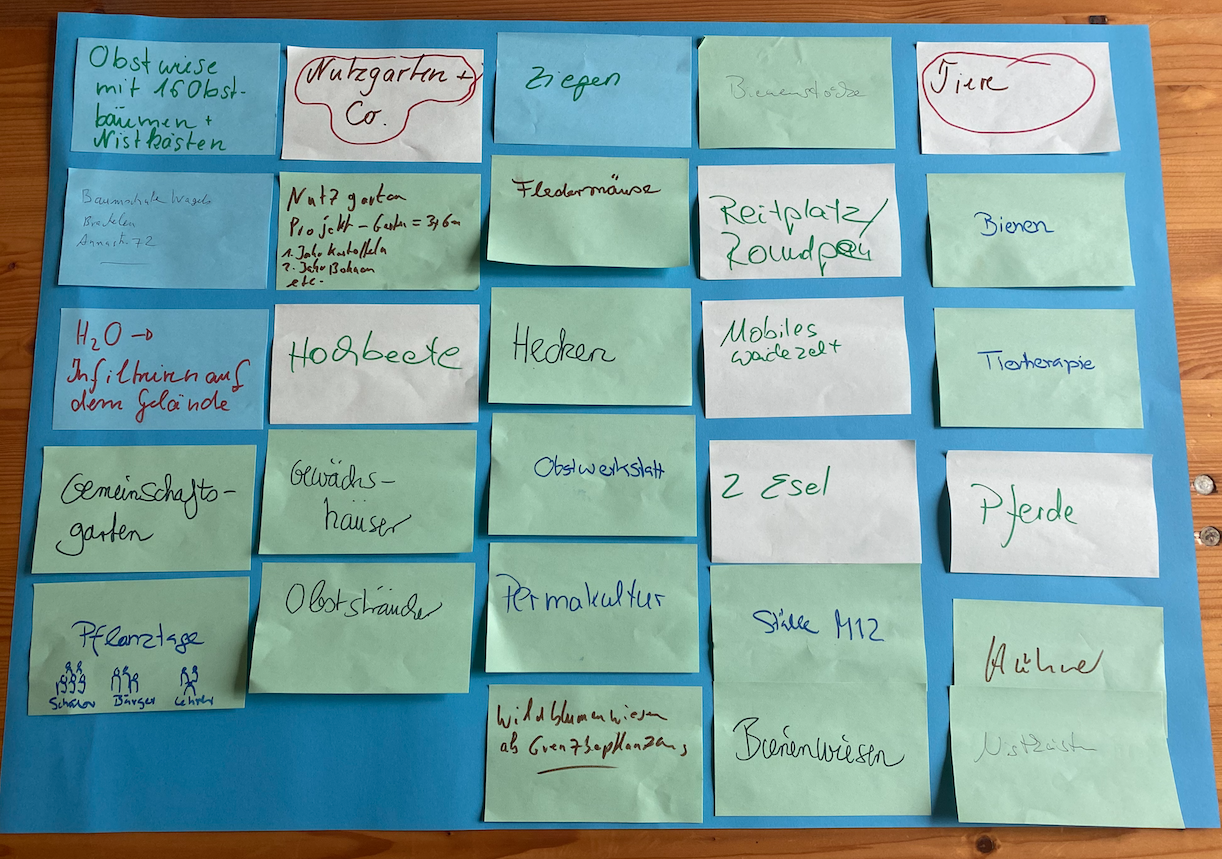 Obstwiese
mit 16 Obst-
bäumen +
Nistkästen
Nutzgarten +
Co.
Ziegen
Bienenstöcke
Tiere
Baumschule
Brakelen
Annastr. 72
Nutzgarten
Projekt - Garten = 3,6m
1. Jahr Kartoffeln
2. Jahr Bohnen
etc.
Fledermäuse
Reitplatz/
Roundpen
Bienen
H₂O →
Infiltriren auf
dem Gelände
Hochbeete
Hecken
Mobiles
Weidezelt
Tiertherapie
Gemeinschafts-
garten
Gewächs-
häuser
Obstwerkstatt
2 Esel
Pferde
Pflanztage
Schüler Bürger Lehrer
Obststräucher
Permakultur
Ställe M12
Hühner
Wildblumenwiesen
als Grenzbepflanzung
Bienenwiesen
Nistkästen